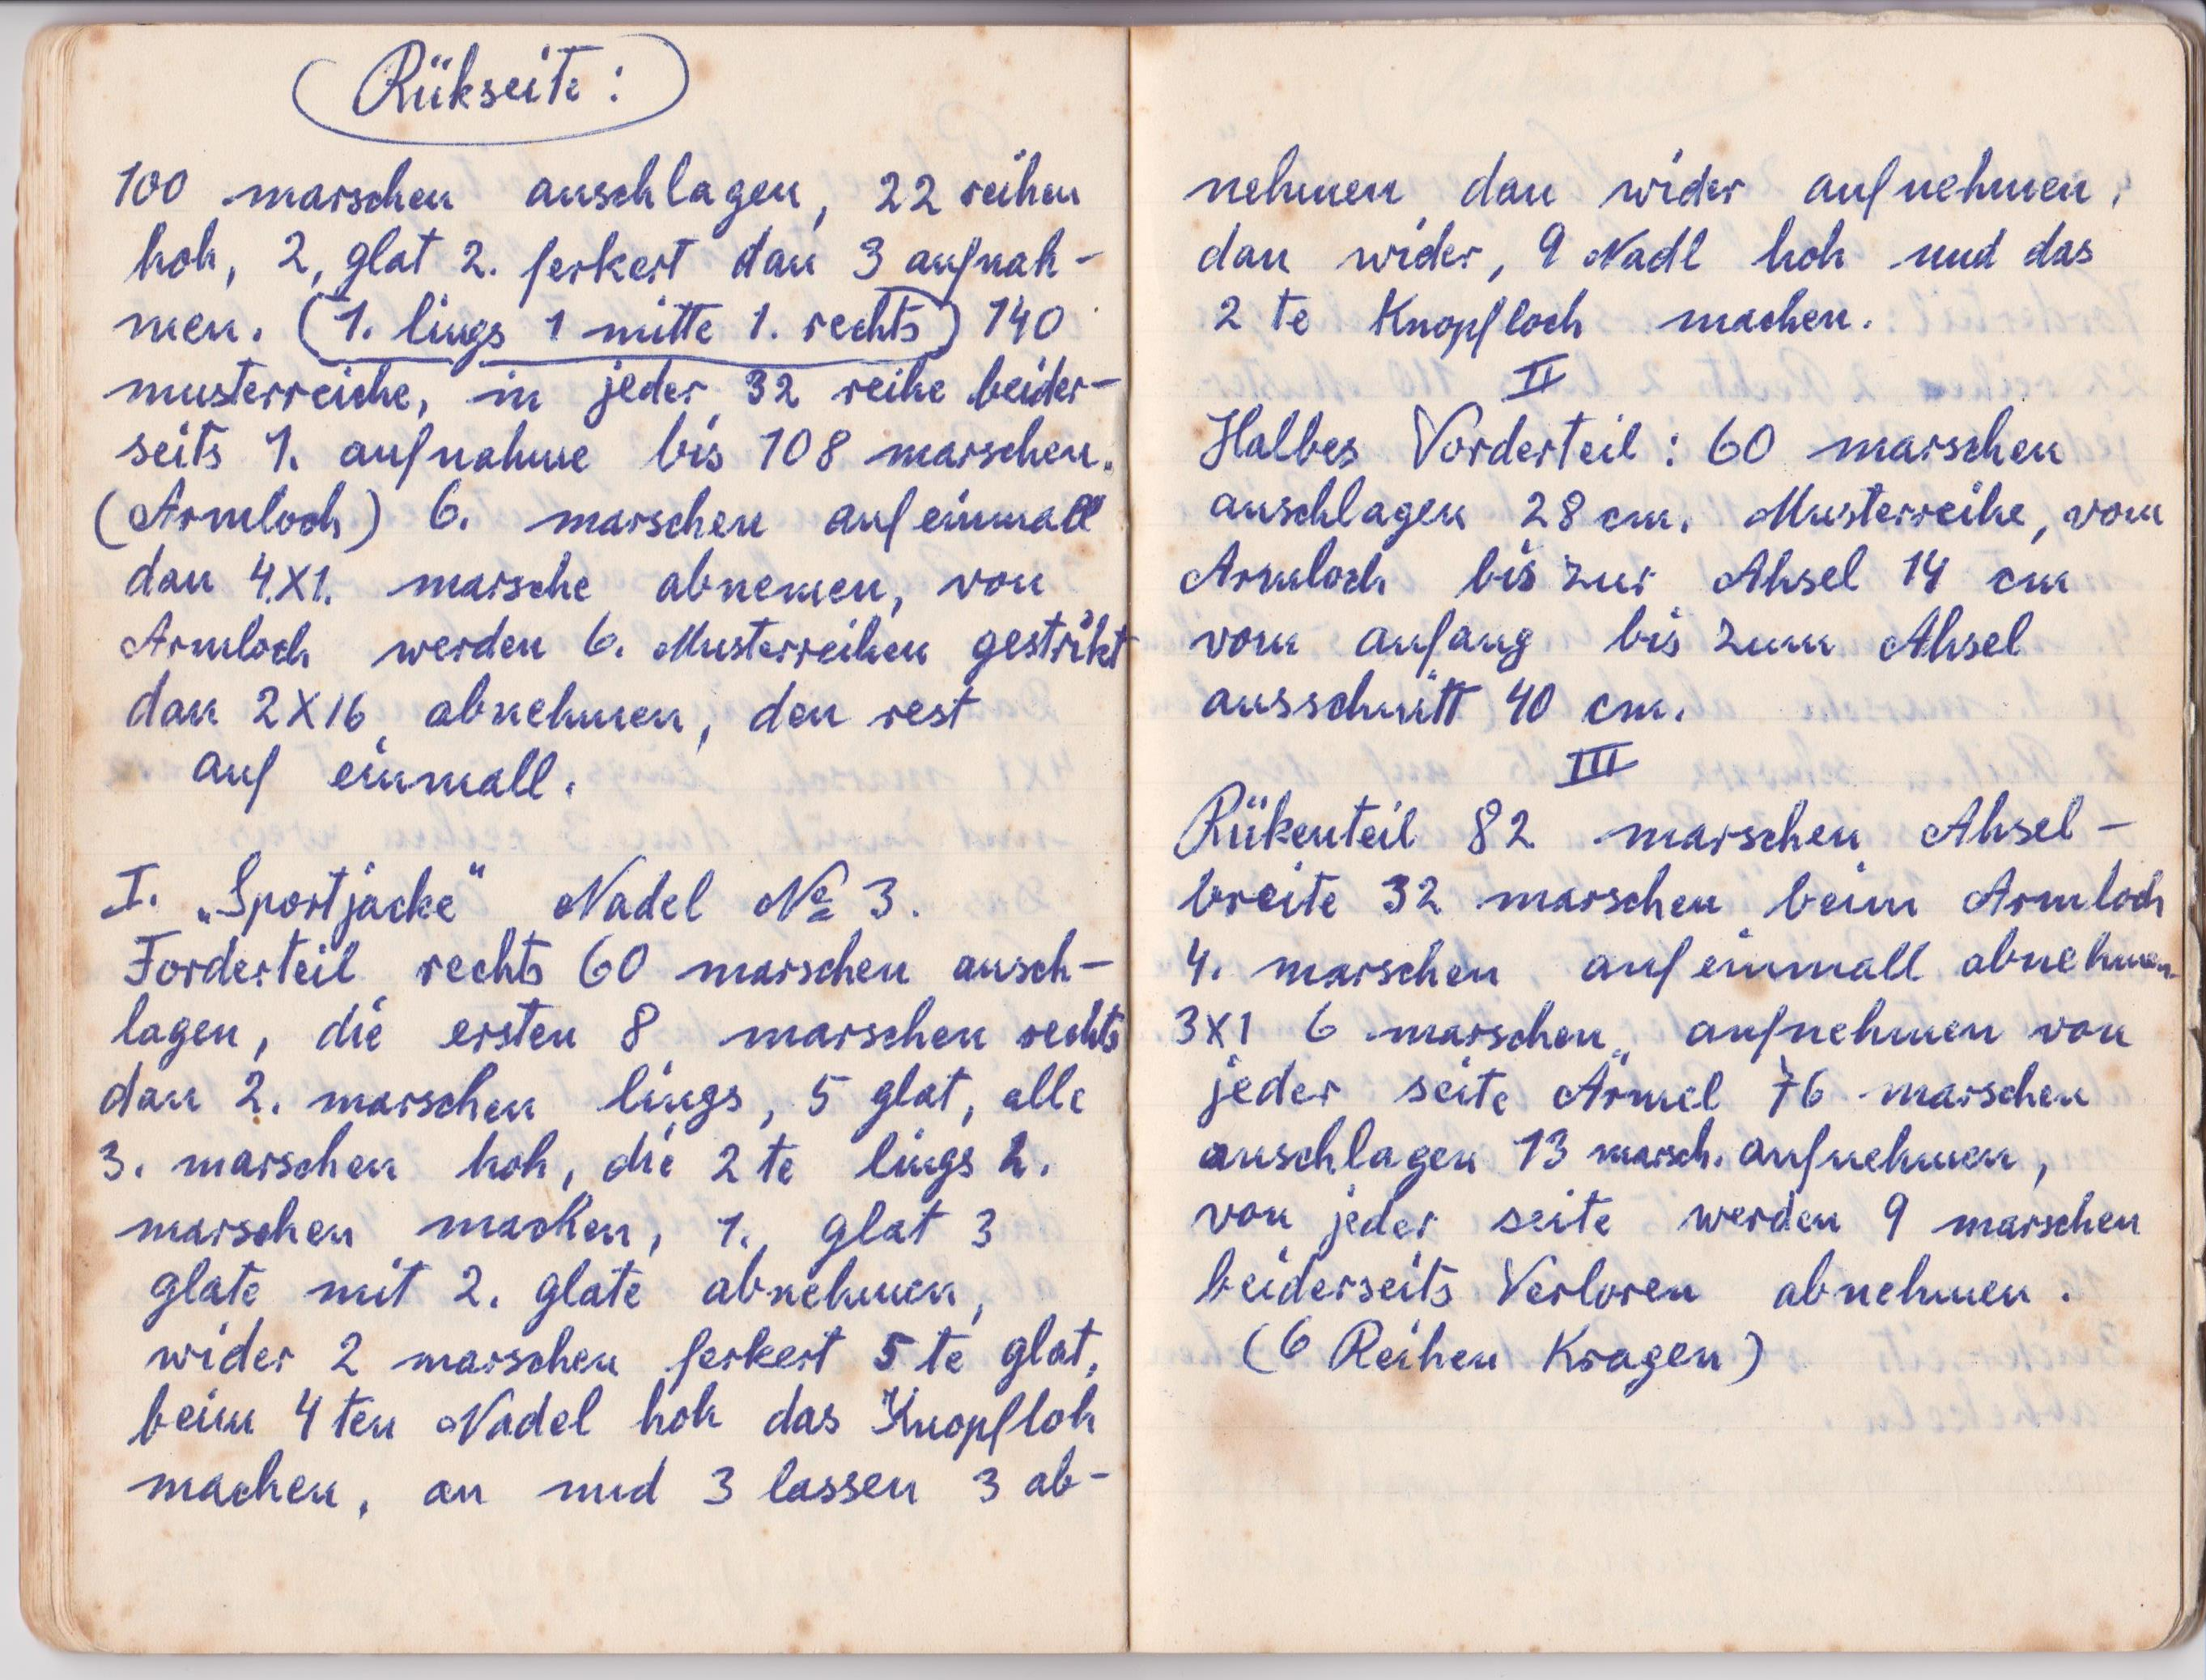 Rükseite:
100 marschen anschlagen, 22 reihen
hoh, 2, glat 2. ferkert dan 3 aufnah-
men. (1. lings 1 mitte 1. rechts) 140
musterreiche, in jeder 32 reihe beider-
seits 1. aufnahme bis 108 marschen.
(Armloch) 6. marschen auf einmall
dan 4.X1. marsche abnemen, von
Armloch werden 6. Musterreihen gestrikt
dan 2X16 abnehmen, den rest
auf einmall.
I. „Sportjacke" Nadel № 3.
Forderteil rechts 60 marschen ansch-
lagen, die ersten 8 marschen rechts
dan 2. marschen lings, 5 glat, alle
3. marschen hoh, die 2te lings 2.
marschen machen, 1. glat 3
glate mit 2. glate abnehmen,
wider 2 marschen ferkert 5te glat,
beim 4ten Nadel hoh das Knopfloh
machen, an und 3 lassen 3 ab-
nehmen dan wider aufnehmen,
dan wider, 9 Nadl hoh und das
2te Knopfloch machen.
II
Halbes Vorderteil: 60 marschen
anschlagen 28 cm. Musterreihe, vom
Armloch bis zur Ahsel 14 cm
vom anfang bis zum Ahsel
ausschnitt 40 cm.
III
Rükenteil 82 marschen Ahsel-
breite 32 marschen beim Armloch
4. marschen auf einmall abnehmen
3X1 6 marschen„ aufnehmen von
jeder seite Ärmel 76 marschen
anschlagen 13 marsch. aufnehmen,
von jeder seite werden 9 marschen
beiderseits Verloren abnehmen.
(6 Reihen Kragen)